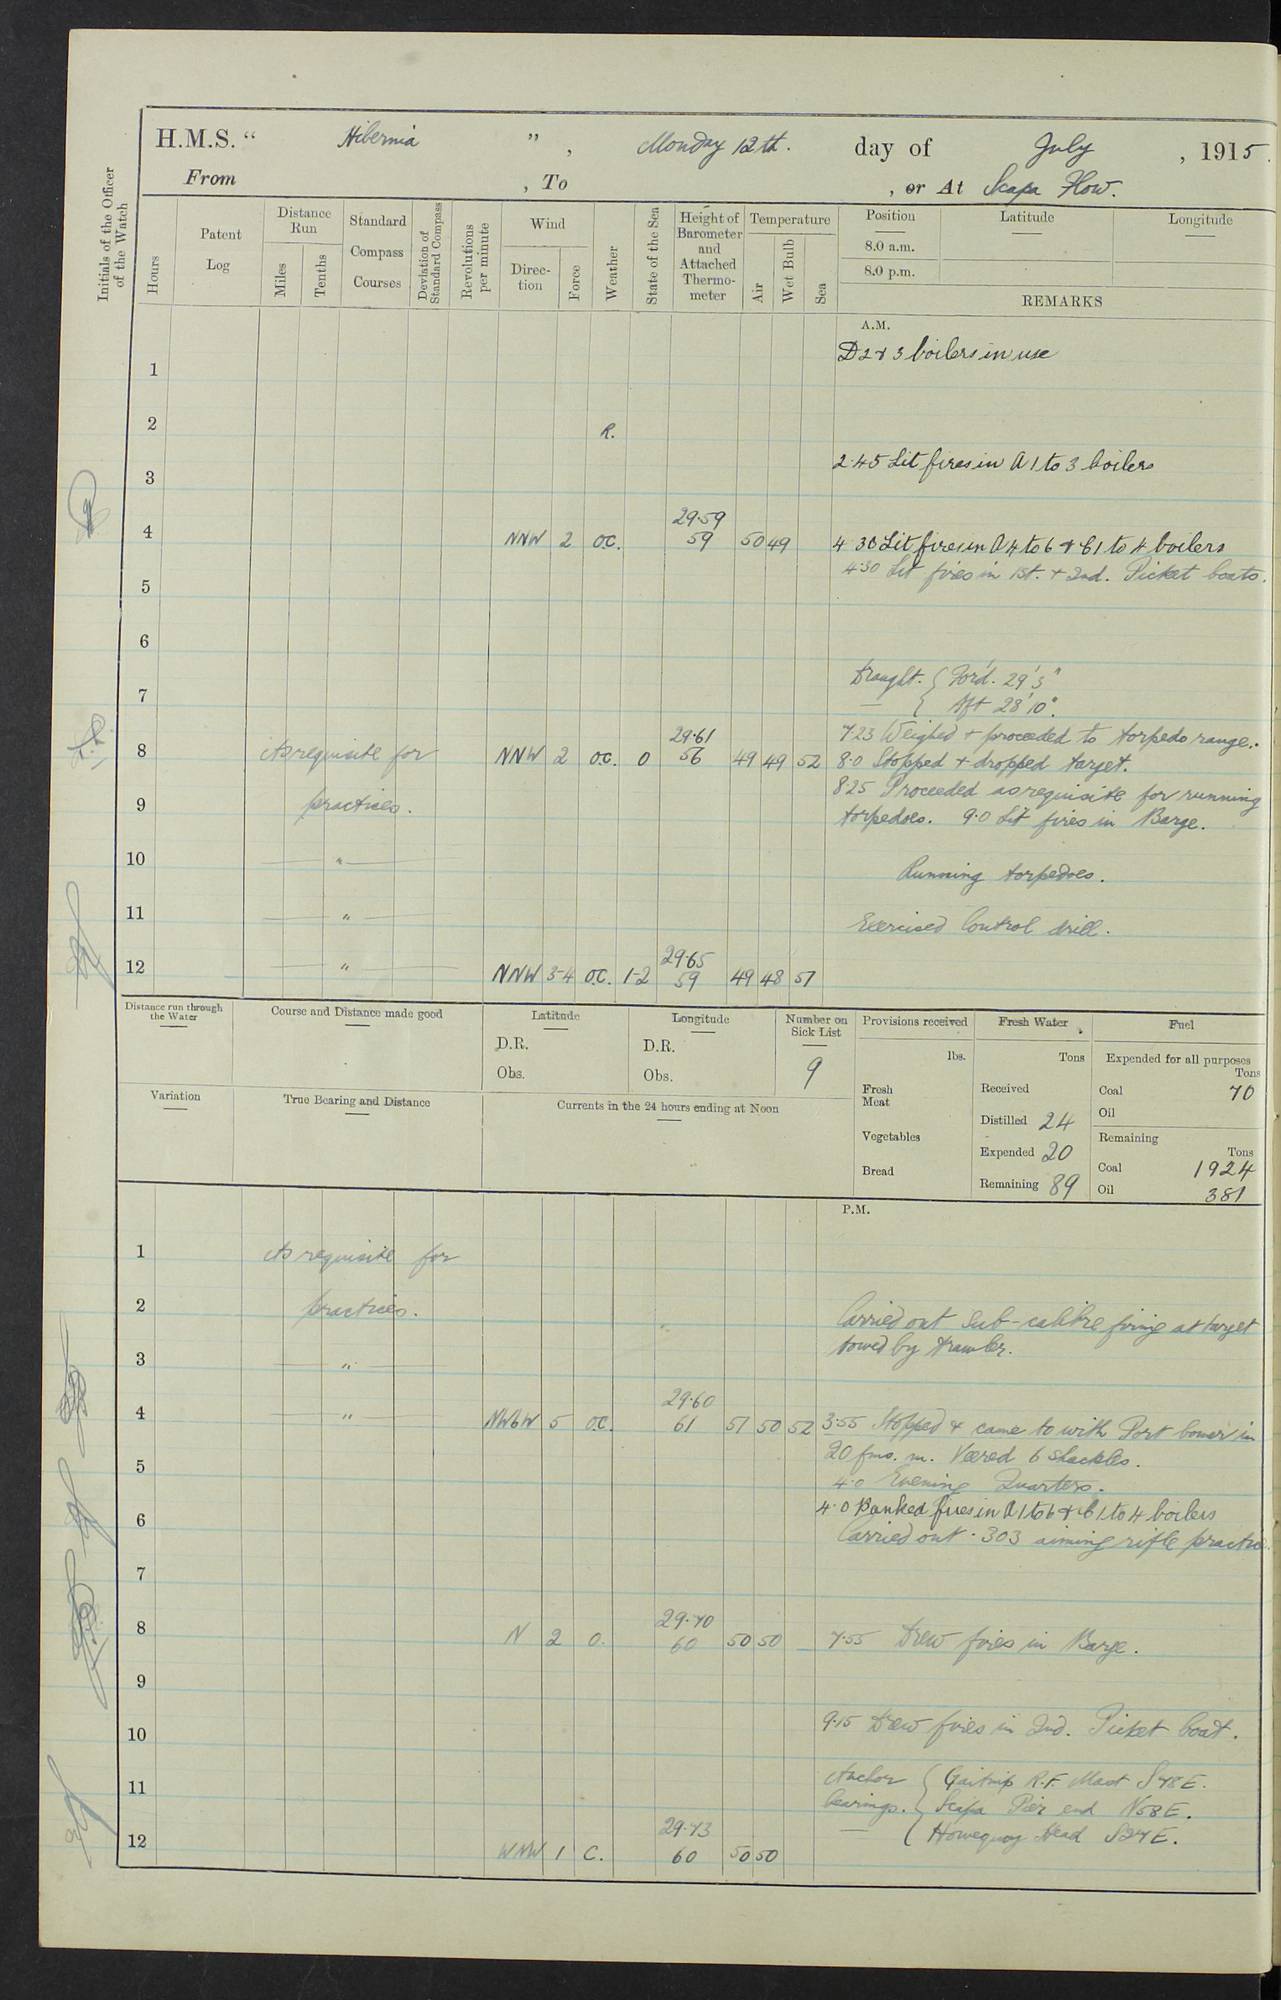 H.M.S. “ Hibernia ” , Monday 12th. day of July , 1915.
From , To , or At Scapa Flow.
Initials of the Officer of the Watch
Hours
Patent Log
Distance Run
Miles
Tenths
Standard Compass Courses
Deviation of Standard Compass
Revolutions per minute
Wind
Direc-tion
Force
Weather
State of the Sea
Height of Barometer and Attached Thermo-meter
Temperature
Air
Wet Bulb
Sea
Position Latitude Longitude
8.0 a.m.
8.0 p.m.
REMARKS
A.M.
D 2 & 3 boilers in use
1
2 R.
2.45 Lit fires in A 1 to 3 boilers
3
29.59
4 NNW 2 O.C. 59 50 49 4 30 Lit fires in A 4 to 6 & B 1 to 4 boilers
4.30 Lit fires in 1st. + 2nd. Picket boats.
5
6
Draught. { For'd. 29' 3"
7 { Aft 28' 10".
29.61 7.23 Weighed + proceeded to torpedo range.
8 As requisite for NNW 2 O.C. 0 56 49 49 52 8.0 Stopped + dropped target.
8.25 Proceeded as requisite for running
9 practices. torpedoes. 9.0 Lit fires in Barge.
10 " Running torpedoes.
11 " Exercised Control drill.
29.65
12 " NNW 3-4 O.C. 1-2 59 49 48 51
Distance run through the Water
Course and Distance made good
Latitude
D.R.
Obs.
Longitude
D.R.
Obs.
Number on Sick List
9
Provisions received
lbs.
Fresh Meat
Vegetables
Bread
Fresh Water
Tons
Received
Distilled 24
Expended 20
Remaining 89
Fuel
Expended for all purposes
Tons
Coal 70
Oil
Remaining
Tons
Coal 1924
Oil 381
Variation
True Bearing and Distance
Currents in the 24 hours ending at Noon
P.M.
1 As requisite for
2 practices. Carried out sub-calibre firing at target
towed by trawler.
3 "
29.60
4 " NWbW 5 O.C. 61 51 50 52 3.55 Stopped & came to with Port bower in
20 fms. m. Veered 6 shackles.
5
4.0 Evening Quarters.
4.0 Banked fires in A 1 to 6 & B 1 to 4 boilers
6
Carried out .303 aiming rifle practice.
7
29.70
8 N 2 O. 60 50 50 7.55 Drew fires in Barge.
9
9.15 Drew fires in 2nd. Picket boat.
10
Anchor bearings. { Gaitnip R.F. Mast S78E.
11 { Scapa Pier end N58E.
29.73 { Howequoy Head S27E.
12 WNW 1 C. 60 50 50